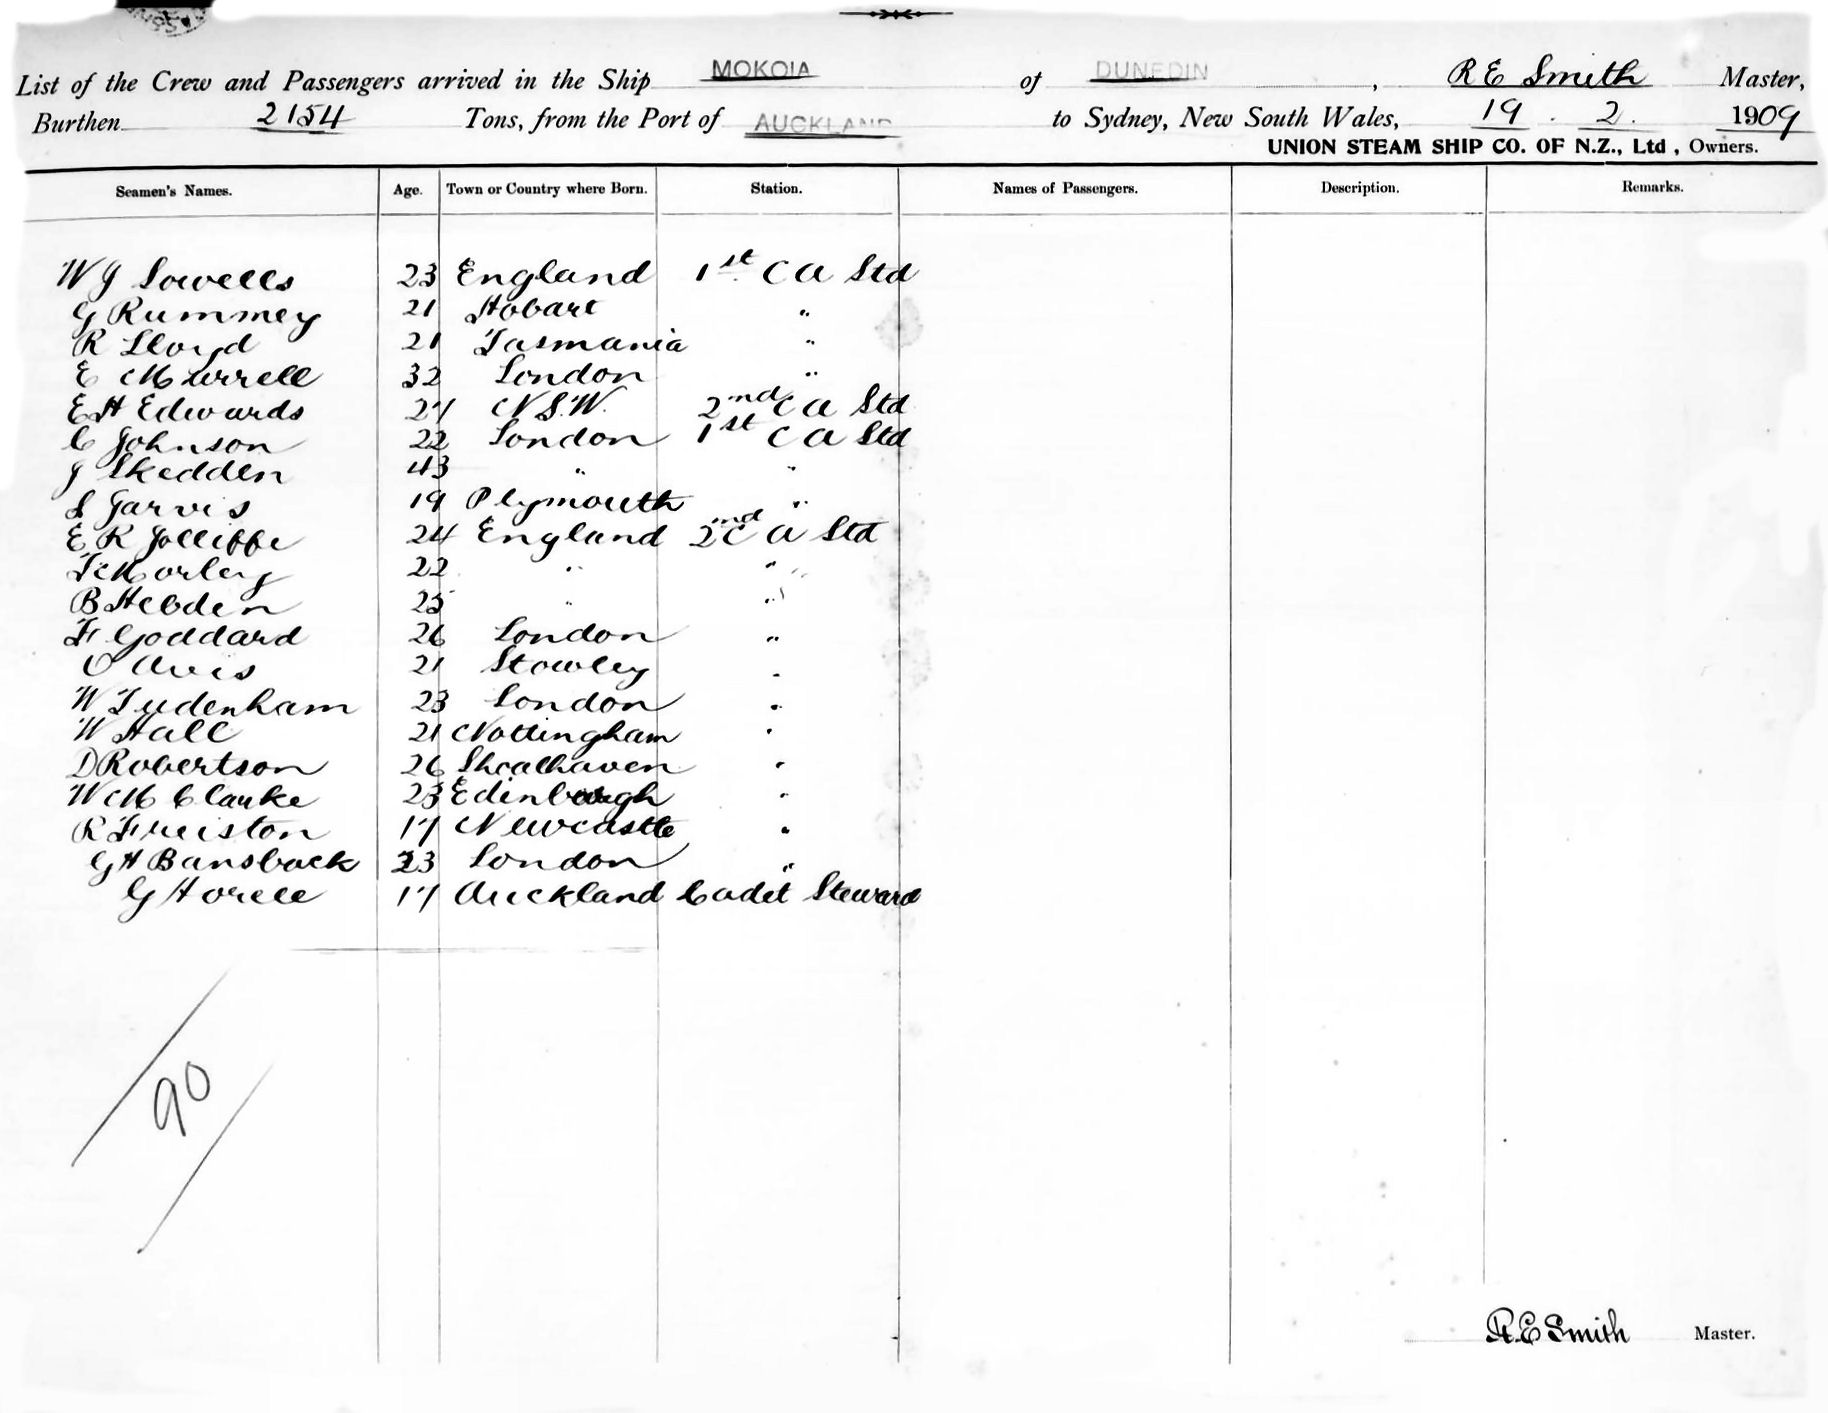 List of the Crew and Passengers arrived in the Ship MOKOIA of DUNEDIN, R E Smith Master,
Burthen 2154 Tons, from the Port of AUCKLAND to Sydney, New South Wales, 19 . 2. 1909
UNION STEAM SHIP CO. OF N.Z., Ltd , Owners.
Seamen's Names. Age. Town or Country where Born. Station. Names of Passengers. Description. Remarks.
W J Sowells 23 England 1st C A Std
G Rummey 21 Hobart "
R Lloyd 21 Tasmania "
E Murrell 32 London "
E H Edwards 27 N.S.W. 2nd C A Std
C Johnson 22 London 1st C A Std
J Skedden 43 " "
S Jarvis 19 Plymouth "
E R Jolliffe 24 England 2nd C A Std
T Morley 22 " "
B Hebden 25 " "
F Goddard 26 London "
O Avis 21 Stowley "
W Tudenham 23 London "
W Hall 21 Nottingham "
D Robertson 26 Shoalhaven "
W M Clarke 23 Edinburgh "
R Freiston 17 Newcastle "
G H Bansback 23 London "
G Horell 17 Auckland Cadet Steward
90
R.E Smith Master.